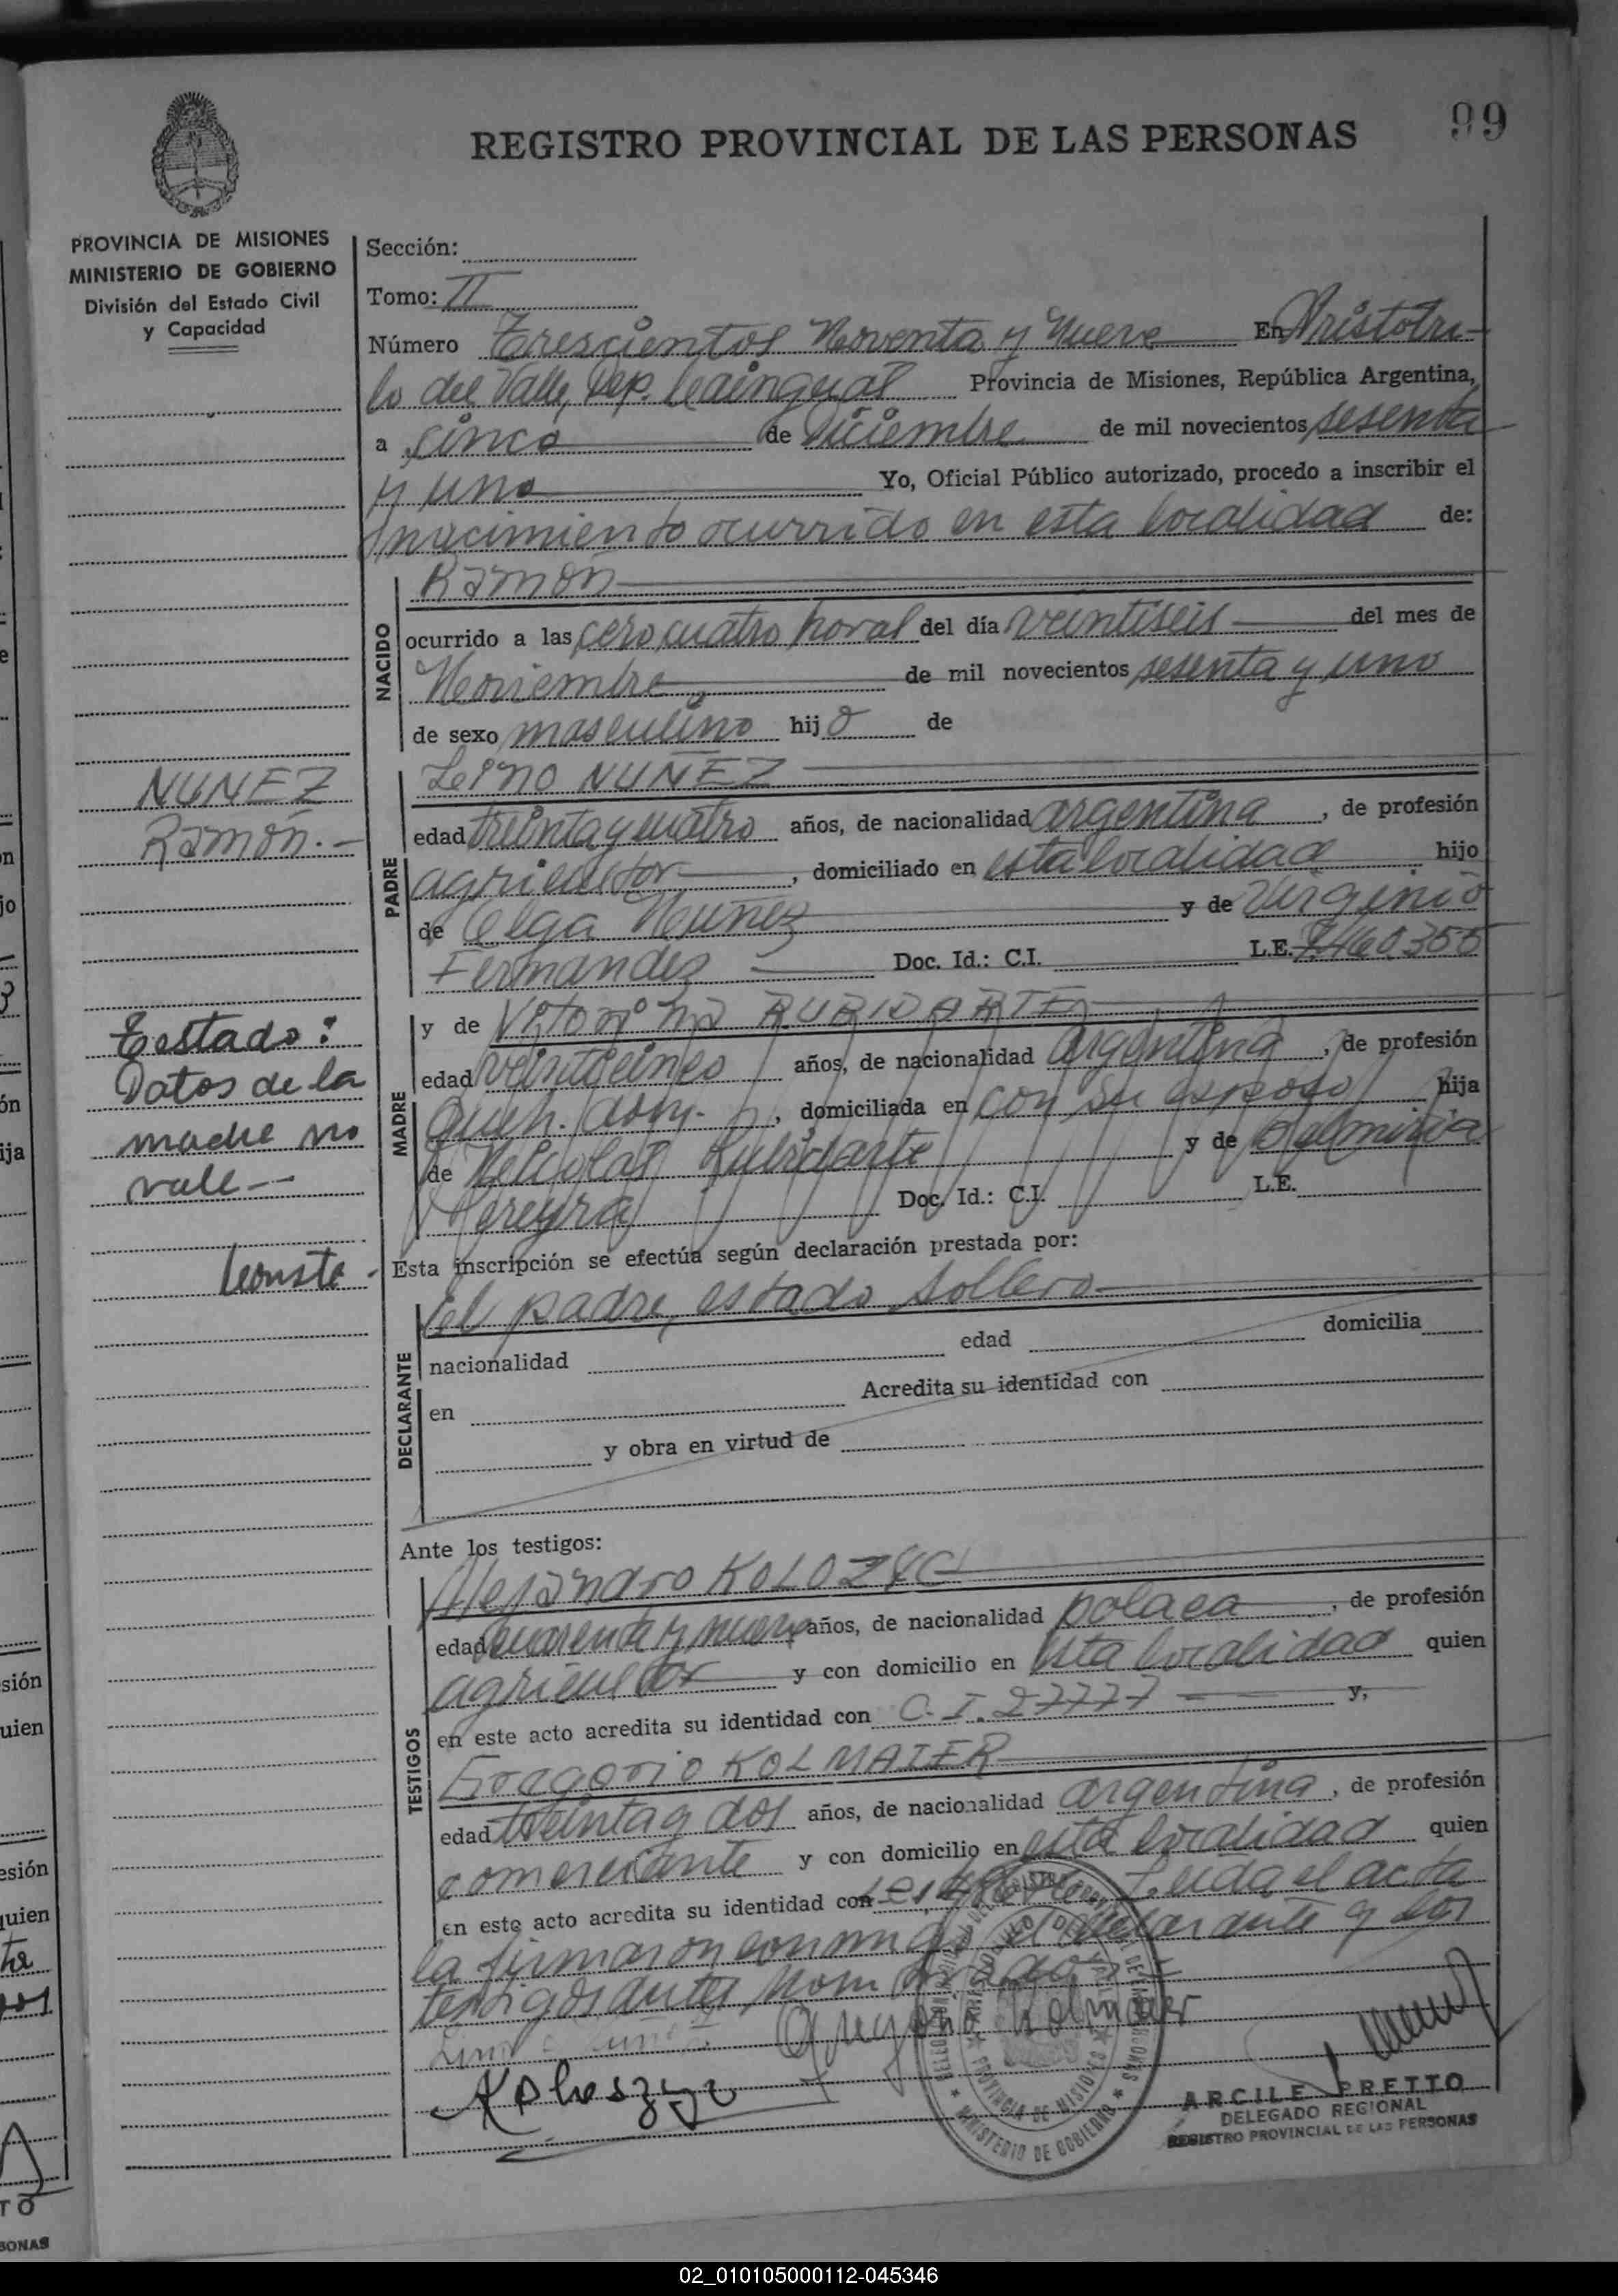 99
REGISTRO PROVINCIAL DE LAS PERSONAS
PROVINCIA DE MISIONES
MINISTERIO DE GOBIERNO
División del Estado Civil
y Capacidad
Sección:
Tomo: II
Número Trescientos Noventa y Nueve En Aristobu-
lo del Valle, Dep. Cainguas Provincia de Misiones, República Argentina,
a cinco de Diciembre de mil novecientos sesenta
y uno Yo, Oficial Público autorizado, procedo a inscribir el
nacimiento ocurrido en esta localidad de:
NACIDO
Ramón
ocurrido a las cero cuatro horas del día veintiseis del mes de
Noviembre de mil novecientos sesenta y uno
de sexo masculino hijo de
NUÑEZ
Ramón.-
PADRE
NUÑEZ
edad treinta y cuatro años, de nacionalidad argentina, de profesión
agricultor, domiciliado en esta localidad hijo
de Olga Nuñez y de Virginio
Fernandez Doc. Id.: C.I. L.E. 7.460.355
Testado:
Datos de la
madre no
vale--
Conste.
MADRE
y de Vitorina RUBIDARTE
edad veinticinco años, de nacionalidad argentina, de profesión
Queh. dom., domiciliada en con su esposo hija
de Neicolas Rubidarte y de
Pereyra Doc. Id.: C.I. L.E.
Esta inscripción se efectúa según declaración prestada por:
DECLARANTE
el padre, estado soltero
nacionalidad edad domicilia
en Acredita su identidad con
y obra en virtud de
Ante los testigos:
TESTIGOS
Alejandro
edad cuarenta y nueve años, de nacionalidad polaca, de profesión
agricultor y con domicilio en esta localidad quien
en este acto acredita su identidad con C. I. 27777 y,
Gregorio KOLMAIER
edad treinta y dos años, de nacionalidad argentina, de profesión
comerciante y con domicilio en esta localidad quien
en este acto acredita su identidad con Leida el acta
la firmaron conmigo el declarante y los
testigos antes nombrados
Gregorio Kolmaier
ARCILE PRETTO
DELEGADO REGIONAL
REGISTRO PROVINCIAL DE LAS PERSONAS
PROVINCIA DE MISIONES
MINISTERIO DE GOBIERNO
02_010105000112-045346